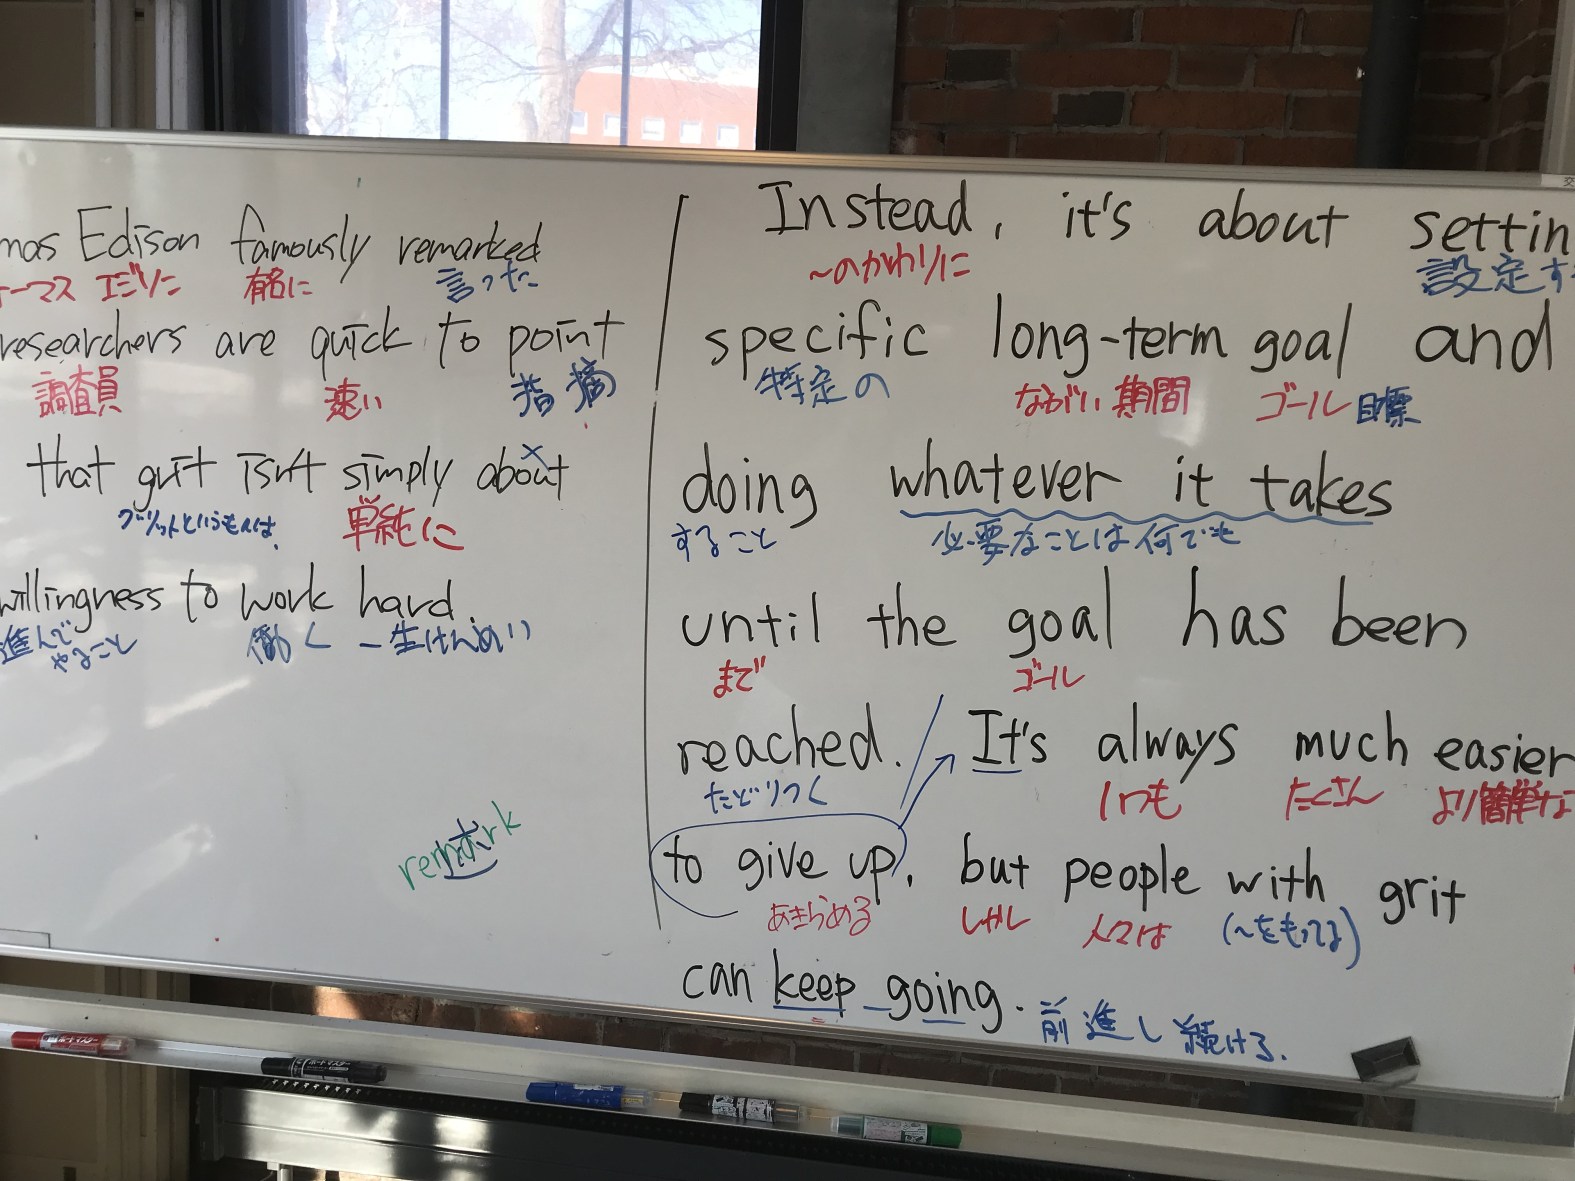 mas Edison famously remarked
ーマス エジソン 有名に 言った
researchers are quick to point
調査員 速い 指摘
that grit isn't simply about
グリットというものは 単純に
willingness to work hard.
進んで やること 働く 一生けんめい
remark
Instead, it's about settin
〜のかわりに 設定す
specific long-term goal and
特定の ながい期間 ゴール 目標
doing whatever it takes
すること 必要なことは何でも
until the goal has been
まで ゴール
reached. It's always much easier
たどりつく いつも たくさん より簡単な
to give up, but people with grit
あきらめる しかし 人々は (〜をもってる)
can keep going. 前進し続ける.